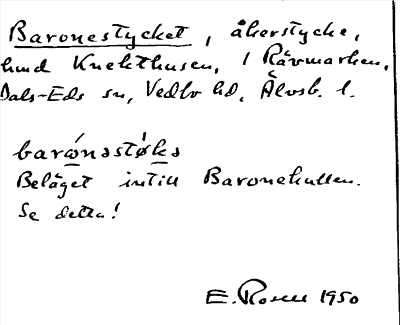 Baronestycket, åkerstycke,
hmd Knekthusen, 1 Rävmarken,
Dals-Eds sn, Vedbo hd, Älvsb. l.
barónsstøkə
Beläget intill Baronekullen.
Se detta!
E. Rosen 1950